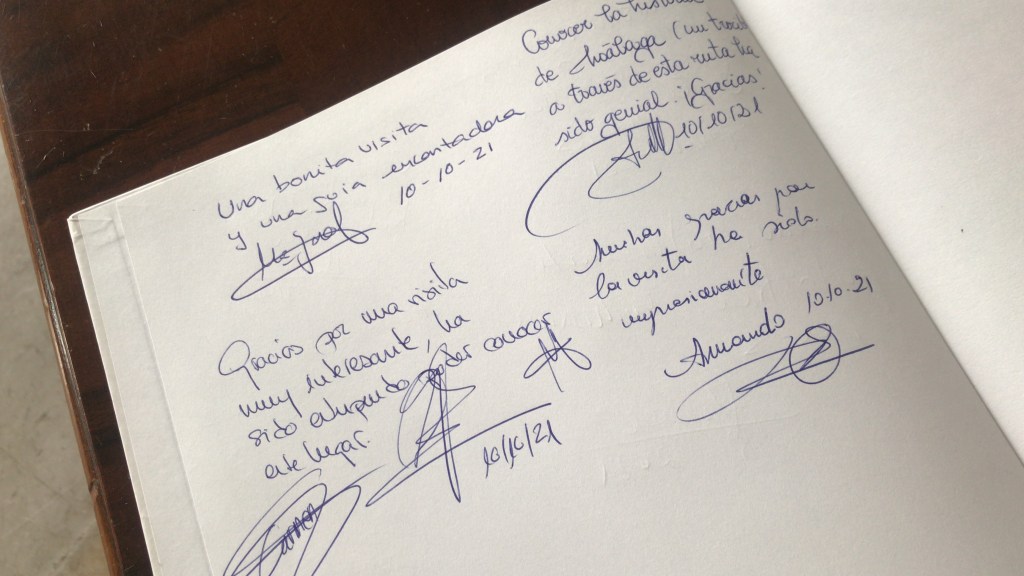 Una bonita visita
y una guía encantadora
10-10-21
Gracias por una visita
muy interesante, ha
sido estupendo poder conocer
este lugar.
10/10/21
Carmen
Conocer la historia
de Málaga (un
a través de esta ruta ha
sido genial. ¡Gracias!
10/10/21
Muchas gracias por
la visita ha sido
impresionante
Armando 10.10.21